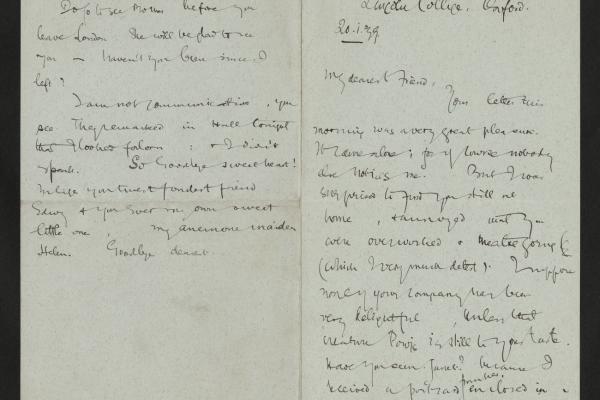 Lincoln College. Oxford.
20.i.99
My dearest Friend,
Your letter this
morning was a very great pleasure.
It came alone; for of course nobody
else notices me. But I was
surprised to find you still at
home, & annoyed that you
were overworked & theatregoing
(which I very much detest). I suppose
none of your company has been
very delightful, unless that
creature Powis is still to your taste.
Have you seen Janet? because I
received a portrait from her enclosed in a
Do go to see Mrs before you
leave London. She will be glad to see
you — haven't you been since I
left?
I am not communicative, you
see. They remarked in Hall tonight
that I looked forlorn : & I didn't
speak. So Goodbye sweetheart!
I am your truest fondest friend
Edwy & you ever my own sweet
little one, my anemone maiden
Helen. Goodbye dearest.